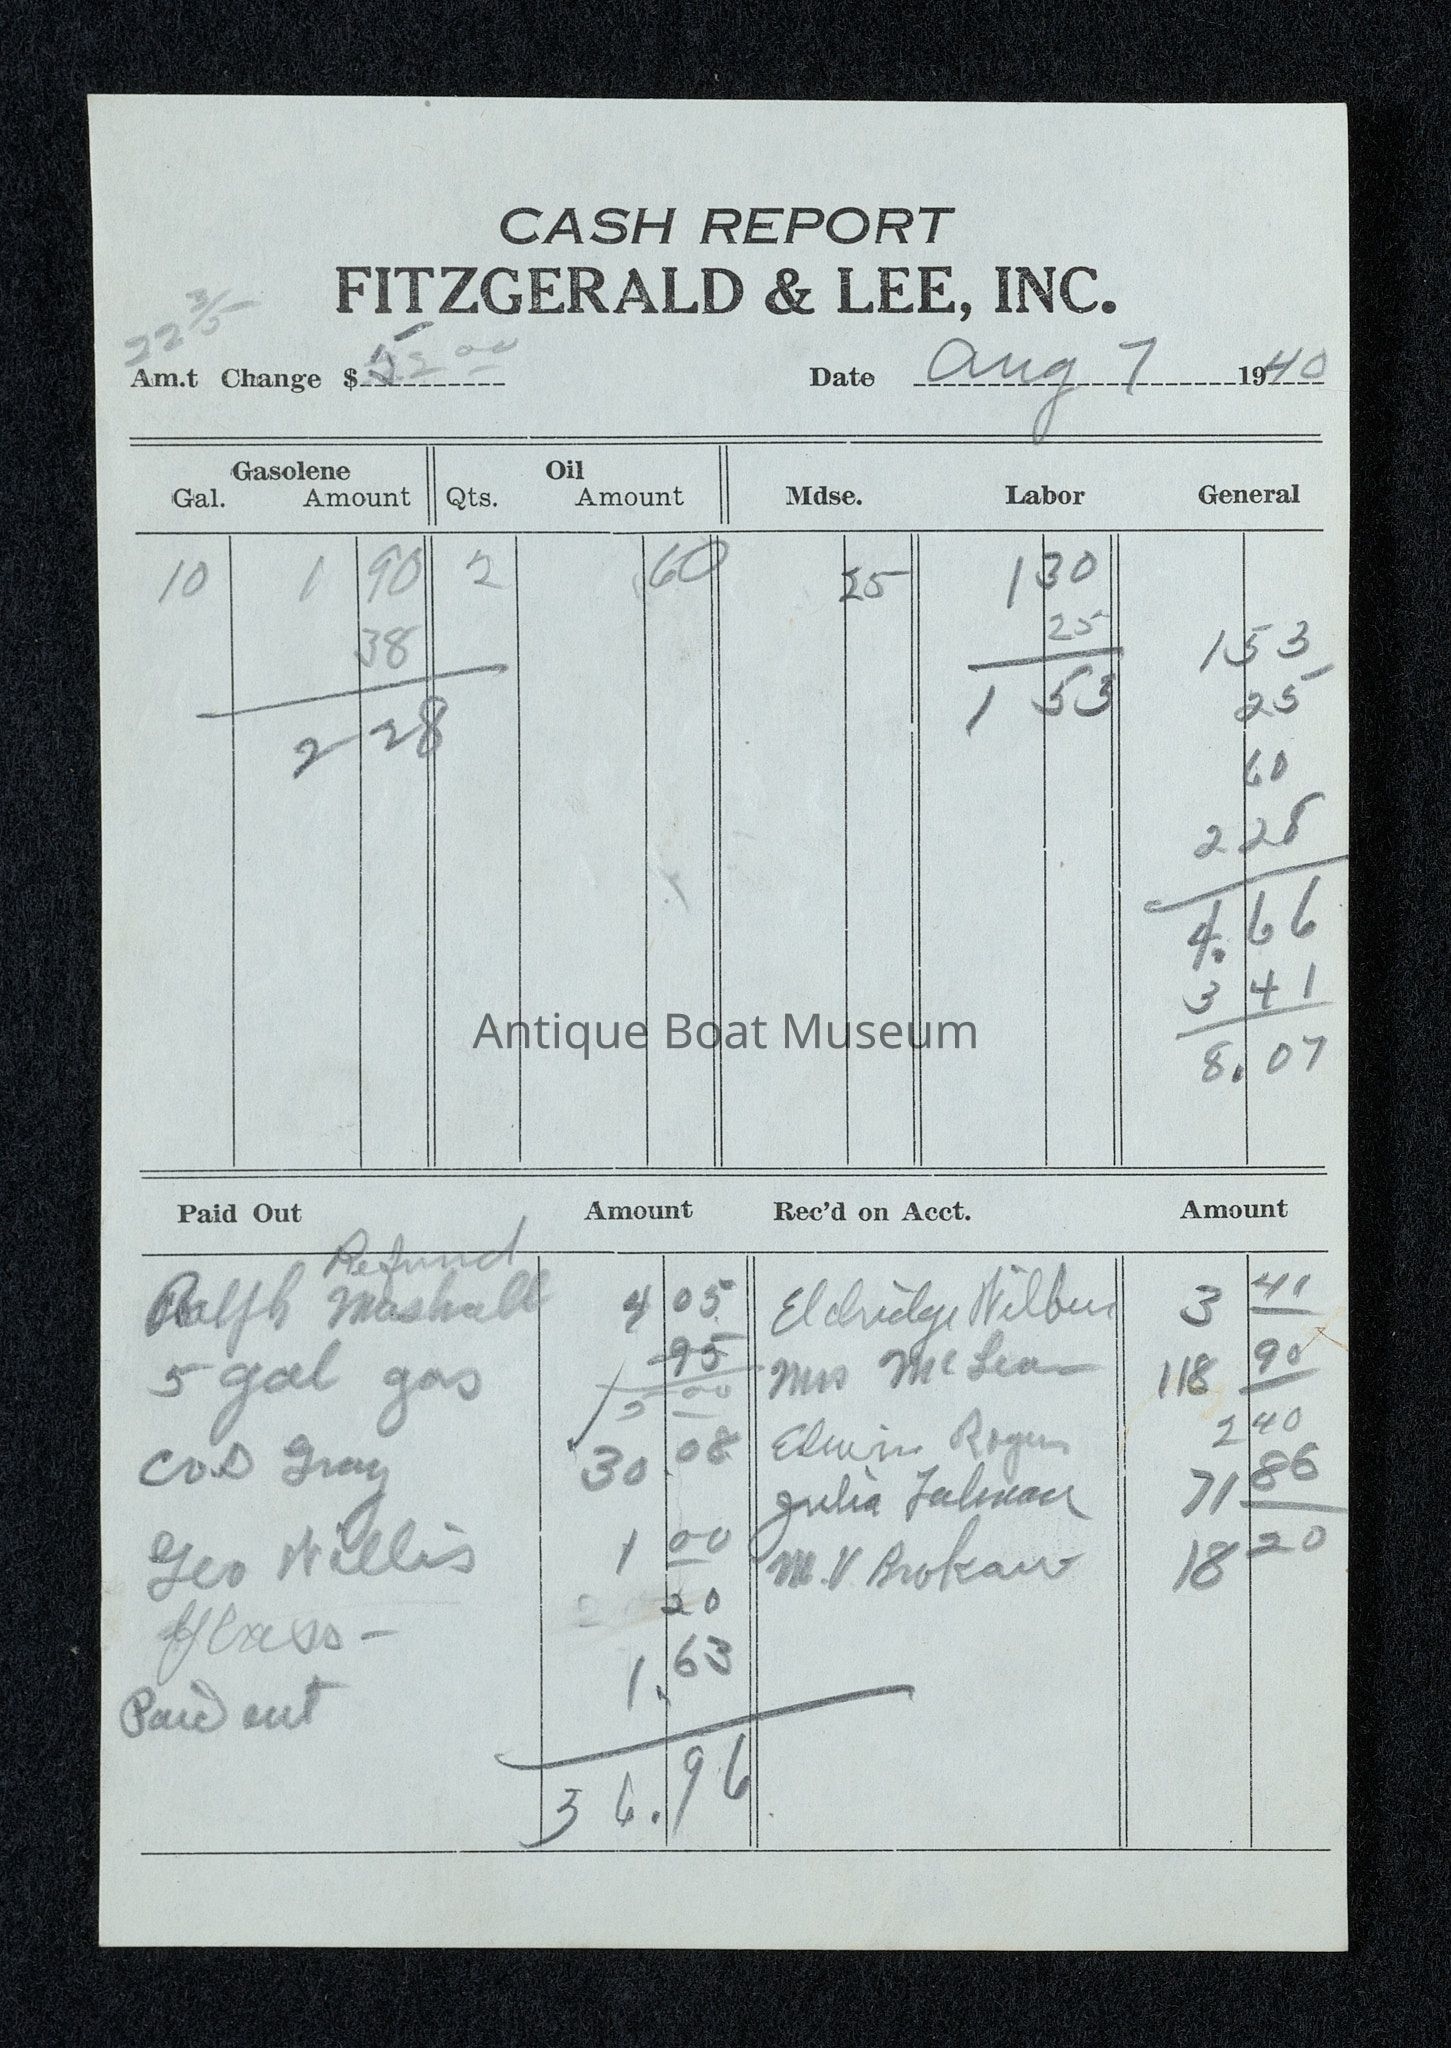 CASH REPORT
FITZGERALD & LEE, INC.
22 3/5
Am.t Change $ 00
Date Aug 7 1940
Gasolene Oil
Gal. Amount Qts. Amount Mdse. Labor General
10 1 90 2 .60 25 1 30
38 25 1 53
2 28 1 53 25
60
2 28
4.66
3 41
8.07
Antique Boat Museum
Paid Out Amount Rec'd on Acct. Amount
Refund
Ralph Mashall 4 05 Eldridge Wilbur 3 41
5 gal gas 95 Mrs McLean 118 90
5 00
C.O.D Gray 30 08 Edwin Rogers 2 40
Julia Talman 71 86
Geo Willis 1 00 M.V Brokaw 18 20
20
1.63
Paid out
36.96